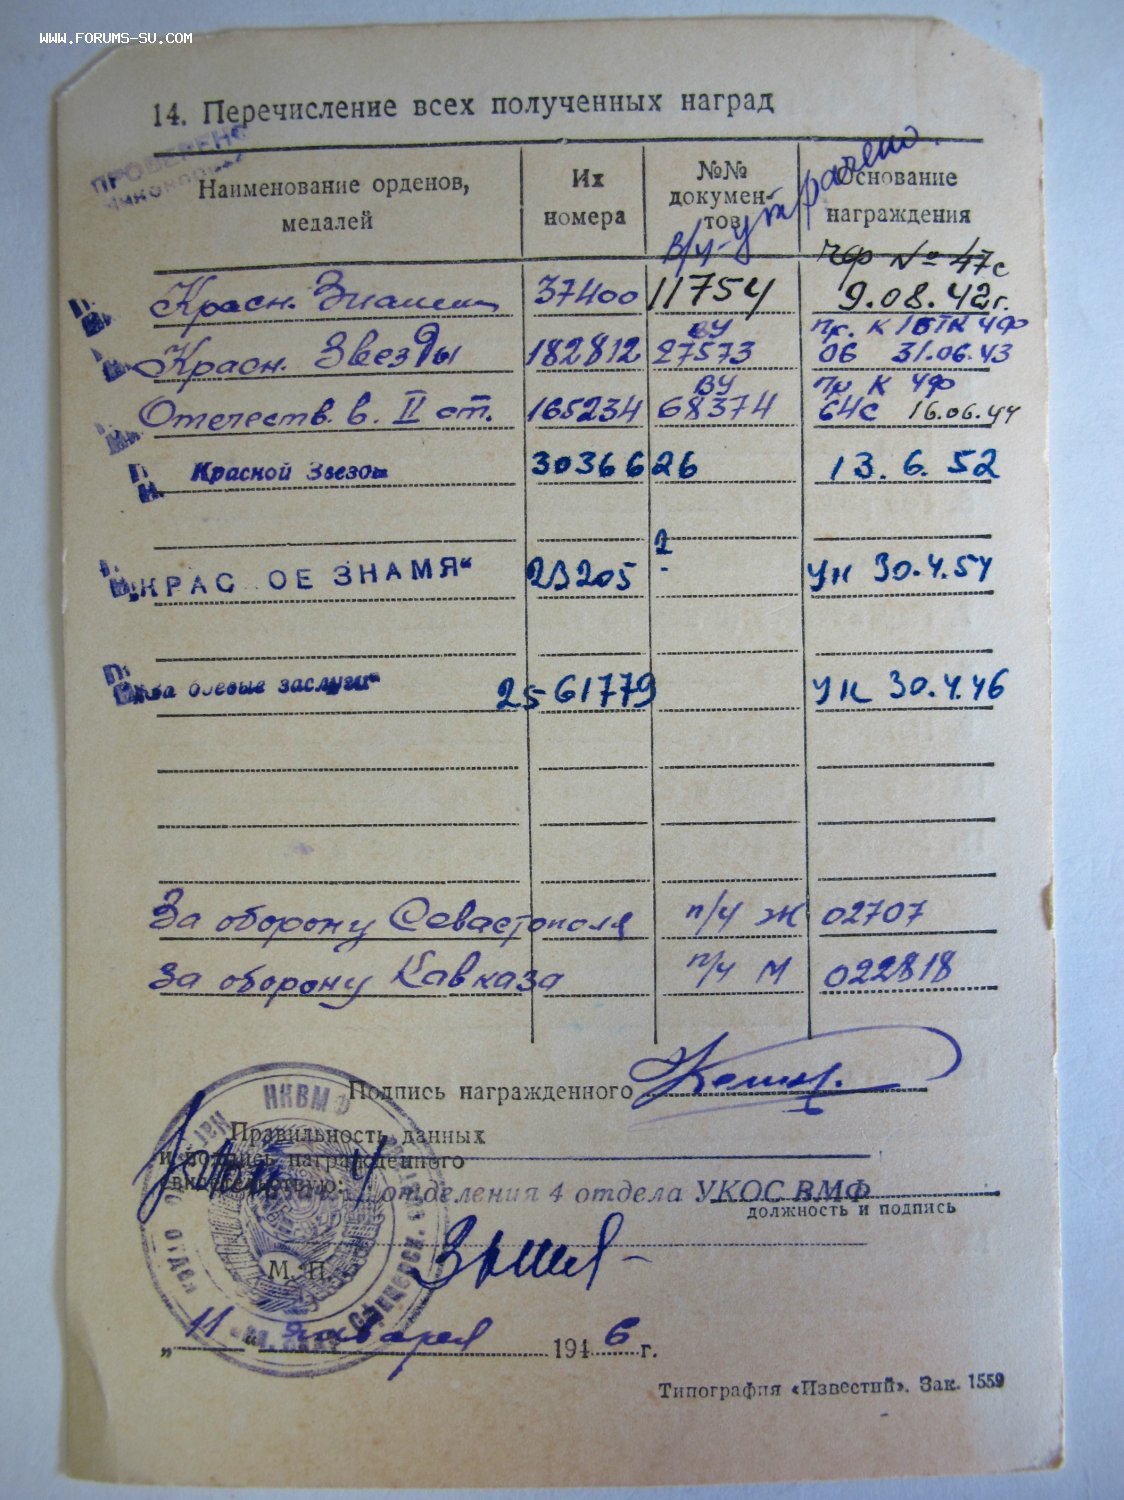 WWW.FORUMS-SU.COM
14. Перечисление всех полученных наград
ПРОВЕРЕНО
Наименование орденов, медалей
Их номера
№№ документов
Основание награждения
в/у утрачено.
Красн. Знамени 37400 11754 ЧФ № 47с 9.08.42г.
Красн. Звезды 182812 ВУ 27573 Пр. К 1БТК ЧФ 06 31.06.43
Отечеств. в. II ст. 165234 ВУ 68374 Пр К ЧФ 64с 16.06.44
Красной Звезды 3036626 13.6.52
КРАС ОЕ ЗНАМЯ“ 2 - Ук 30.4.54
За боевые заслуги“ 2561779 Ук 30.4.46
За оборону Севастополя п/у Ж 02707
За оборону Кавказа п/у М 022818
Подпись награжденного
Правильность данных
и подпись награжденного
свидетельствую:
отделения 4 отдела УКОС ВМФ
должность и подпись
НКВМФ
М. П.
„11“ января 1946 г.
Типография «Известий». Зак. 1559